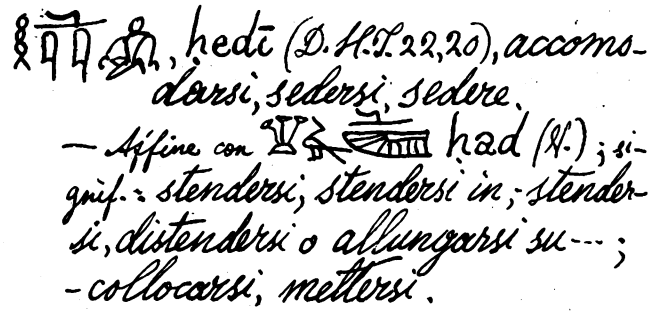 𓎛𓂧𓇌, ḥedī (D.H.I. 22,20), accomo-
darsi, sedersi, sedere.
— Affine con ḥad (N.); si-
gnif.: stendersi, stendersi in; stender-
si, distendersi o allungarsi su...;
- collocarsi, mettersi.